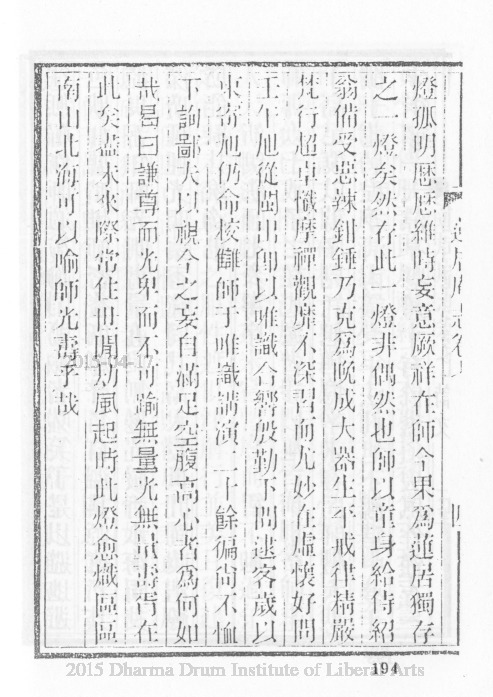 燈孤明歷歷維時妄意厥祥在師今果為蓮居獨存
之一燈矣然存此一燈非偶然也師以童身給侍紹
翁備受惡辣鉗錘乃克為晚成大器生平戒律精嚴
梵行超卓懺摩禪觀靡不深習而尤妙在虛懷好問
壬午旭從閩出卽以唯識合響殷勤下問逮客歲以
東寄旭仍命校讎師于唯識講演二十餘徧尙不恤
下詢鄙夫以視今之妄自滿足空腹高心者為何如
哉易曰謙尊而光卑而不可踰無量光無量壽胥在
此矣盡未來際常住世間劫風起時此燈愈熾區區
南山北海可以喻師光壽乎哉
2015-04-17
194
2015 Dharma Drum Institute of Liberal Arts